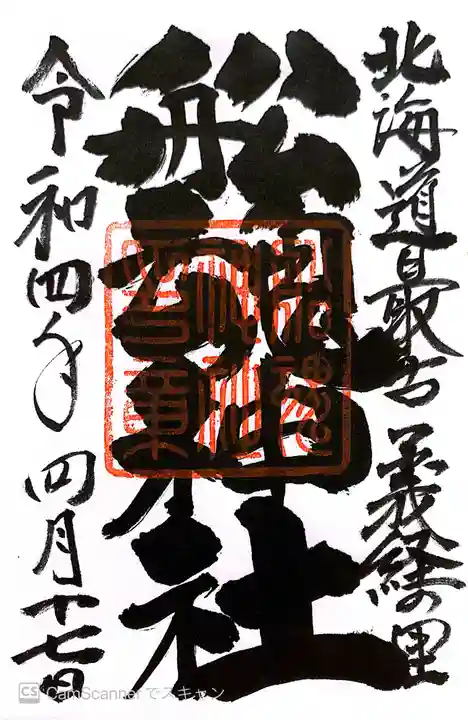 北海道最古 義経の里
舩魂神社
令和四年 四月十七日
CS CamScanner でスキャン